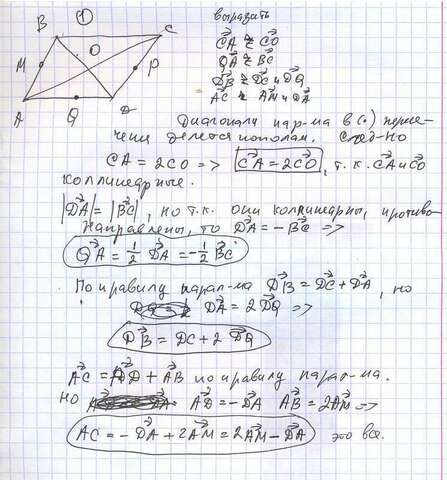 ①
B
C
O
M
P
A
Q
D
выразить
C͞A ч/з C͞O
Q͞A ч/з B͞C
D͞B ч/з D͞C и D͞Q
A͞C ч/з A͞M и D͞A
Диагонали пар-ма в (.) пересе-
чения делятся пополам. След-но
CA = 2CO => C͞A = 2C͞O, т.к. C͞A и C͞O
коллинеарные.
|D͞A| = |B͞C|, но т.к. они коллинеарны, противо
направлены, то D͞A = -B͞C =>
Q͞A = 1/2 D͞A = -1/2 B͞C
По правилу парал-ма D͞B = D͞C + D͞A, но
D͞A = 2 D͞Q =>
D͞B = DC + 2 D͞Q
A͞C = A͞D + A͞B по правилу парал-ма.
Но A͞D = -D͞A A͞B = 2A͞M =>
AC = -D͞A + 2A͞M = 2A͞M - D͞A это все.